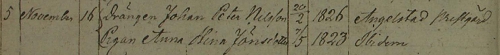 5 November 16 Drängen Johan Peter Nilsson 20/2 1826 Angelstad Prestgård
Pigan Anna Stina Jönsdotter 7/5 1823 Ibidem